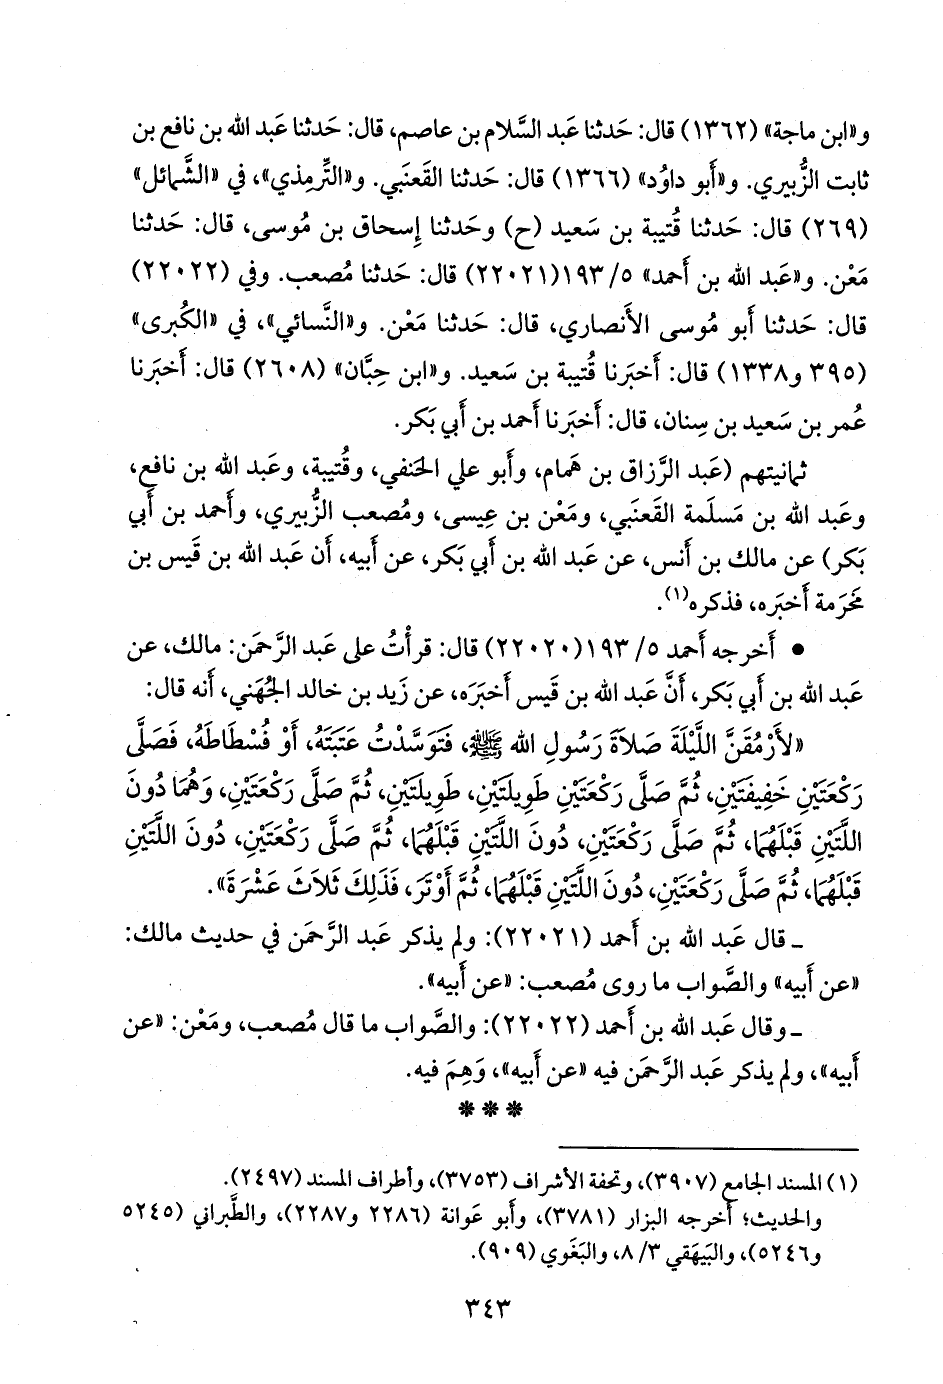 و«ابن ماجة» (١٣٦٢) قال: حَدثنا عَبد السَّلام بن عاصم، قال: حَدثنا عَبد الله بن نافع بن
ثابت الزُّبيري. و«أَبو داوُد» (١٣٦٦) قال: حَدثنا القَعنَبي. و«التِّرمِذي»، في «الشَّمائل»
(٢٦٩) قال: حَدثنا قُتيبة بن سَعيد (ح) وحَدثنا إِسحاق بن مُوسى، قال: حَدثنا
مَعْن. و«عَبد الله بن أَحمد» ٥/ ١٩٣(٢٢٠٢١) قال: حَدثنا مُصعب. وفي (٢٢٠٢٢)
قال: حَدثنا أَبو مُوسى الأَنصاري، قال: حَدثنا مَعْن. و«النَّسائي»، في «الكُبرى»
(٣٩٥ و١٣٣٨) قال: أَخبَرنا قُتيبة بن سَعيد. و«ابن حِبَّان» (٢٦٠٨) قال: أَخبَرنا
عُمر بن سَعيد بن سِنان، قال: أَخبَرنا أَحمد بن أَبي بَكر.
ثمانيتهم (عَبد الرَّزاق بن هَمام، وأَبو علي الحَنفي، وقُتيبة، وعَبد الله بن نافع،
وعَبد الله بن مَسلَمة القَعنَبي، ومَعْن بن عِيسى، ومُصعب الزُّبيري، وأَحمد بن أَبي
بَكر) عن مالك بن أَنس، عن عَبد الله بن أَبي بَكر، عن أَبيه، أَن عَبد الله بن قَيس بن
مَخرَمة أَخبَره، فذكره(١).
• أَخرجه أَحمد ٥/ ١٩٣(٢٢٠٢٠) قال: قرأْتُ على عَبد الرَّحمَن: مالك، عن
عَبد الله بن أَبي بَكر، أَنَّ عَبد الله بن قَيس أَخبَرَه، عن زَيد بن خالد الجُهَني، أَنه قال:
«لأَرْمُقَنَّ اللَّيْلَةَ صَلاَةَ رَسُولِ الله ﷺ، فَتَوَسَّدْتُ عَتَبَتَهُ، أَوْ فُسْطَاطَهُ، فَصَلَّى
رَكْعَتَيْنِ خَفِيفَتَيْنِ، ثُمَّ صَلَّى رَكْعَتَيْنِ طَوِيلَتَيْنِ، طَوِيلَتَيْنِ، ثُمَّ صَلَّى رَكْعَتَيْنِ، وَهُمَا دُونَ
اللَّتَيْنِ قَبْلَهُمَا، ثُمَّ صَلَّى رَكْعَتَيْنِ، دُونَ اللَّتَيْنِ قَبْلَهُمَا، ثُمَّ صَلَّى رَكْعَتَيْنِ، دُونَ اللَّتَيْنِ
قَبْلَهُمَا، ثُمَّ صَلَّى رَكْعَتَيْنِ، دُونَ اللَّتَيْنِ قَبْلَهُمَا، ثُمَّ أَوْتَرَ، فَذَلِكَ ثَلاَثَ عَشْرَةَ».
ـ قال عَبد الله بن أَحمد (٢٢٠٢١): ولم يذكر عَبد الرَّحمَن في حديث مالك:
«عن أَبيه» والصَّواب ما روى مُصعب: «عن أَبيه».
ـ وقال عَبد الله بن أَحمد (٢٢٠٢٢): والصَّواب ما قال مُصعب، ومَعْن: «عن
أَبيه»، ولم يذكر عَبد الرَّحمَن فيه «عن أَبيه»، وَهِمَ فيه.
* * *
(١) المسند الجامع (٣٩٠٧)، وتحفة الأشراف (٣٧٥٣)، وأطراف المسند (٢٤٩٧).
والحديث؛ أَخرجه البزار (٣٧٨١)، وأَبو عَوانة (٢٢٨٦ و٢٢٨٧)، والطَّبراني (٥٢٤٥
و٥٢٤٦)، والبَيهَقي ٣/ ٨، والبَغَوي (٩٠٩).
٣٤٣